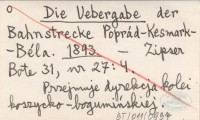 Die Uebergabe der
Bahnstrecke Poprád-Kesmark-
-Béla. 1893. — Zipser
Bote 31, nr 27: 4.
Przejmuje dyrekcja kolei
koszycko-bogumińskiej.